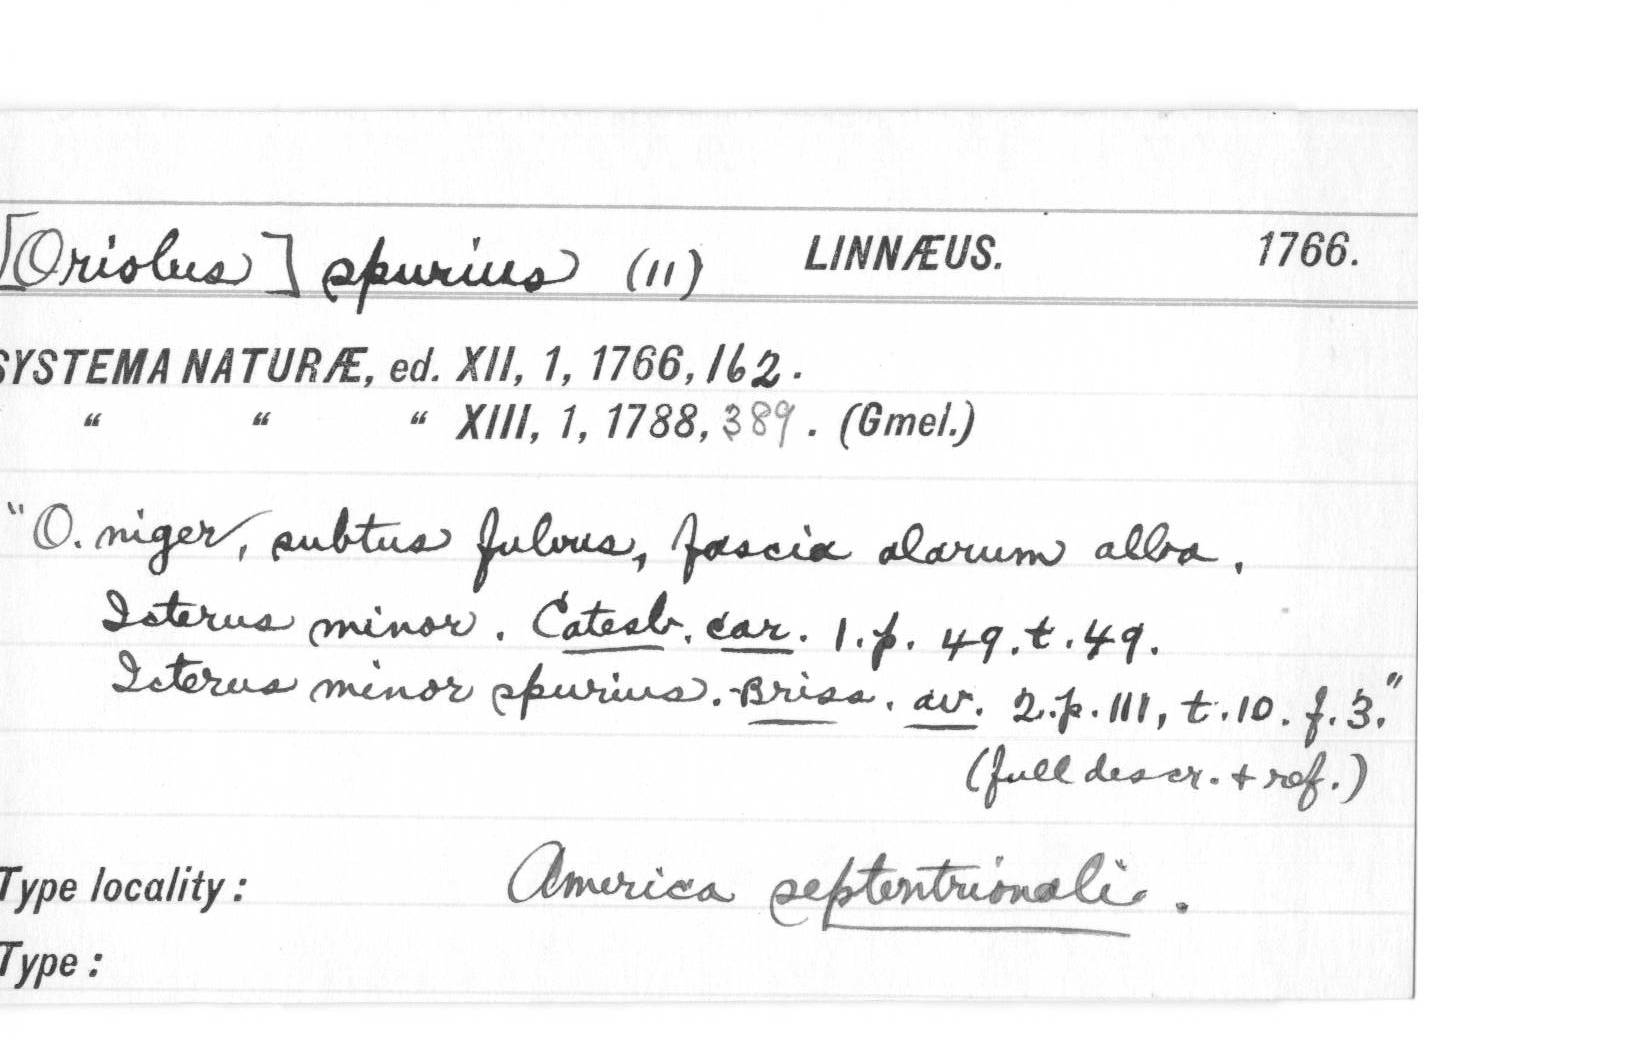 [Oriolus] spurius (11) LINNÆUS. 1766.
SYSTEMA NATURÆ, ed. XII, 1, 1766, 162.
“ “ “ XIII, 1, 1788, 389. (Gmel.)
"O. niger, subtus fulvus, fascia alarum alba.
Icterus minor. Catesb. car. 1. p. 49. t. 49.
Icterus minor spurius. Briss. av. 2. p. 111, t. 10. f. 3."
(full descr. + ref.)
Type locality: America septentrionali.
Type: